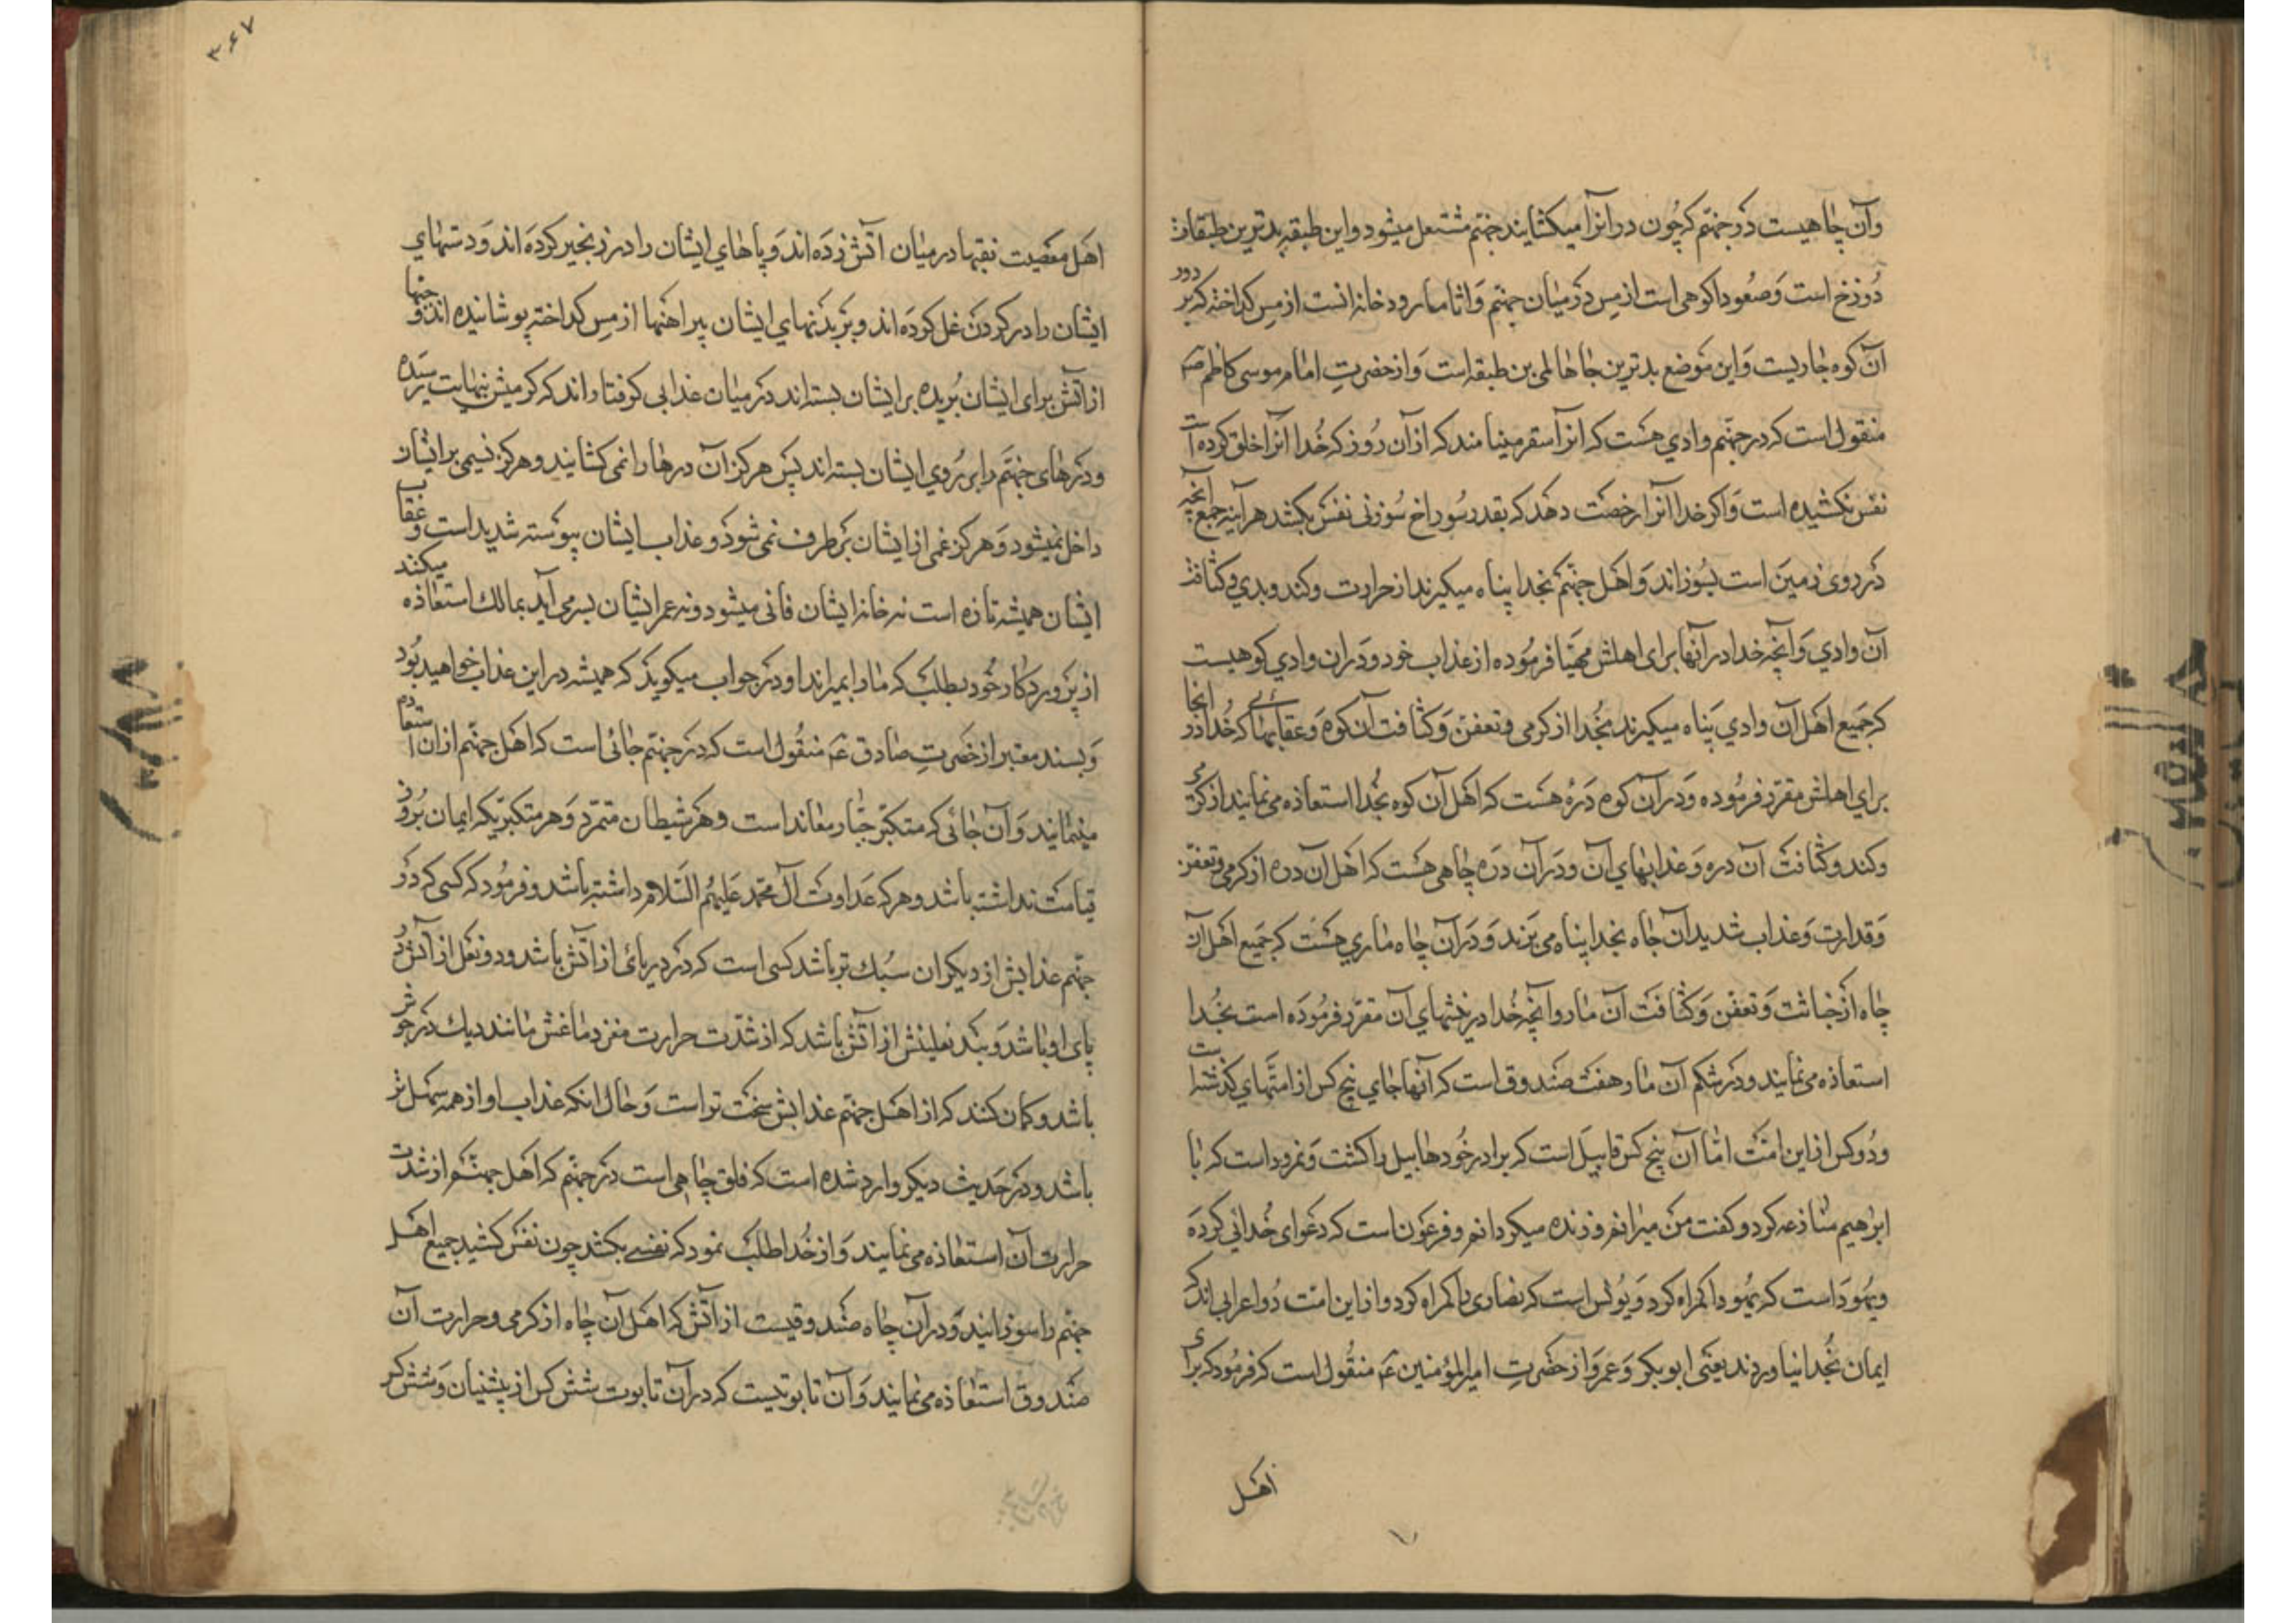 وآن چاهیست در جهنم که چون در آنرا میکشایند جهنم مشتعل میشود واین طبقه بدترین طبقات
دوزخ است وصعودا کوهی است از مس در میان جهنم واثاما رودخانه انست از مس کداخته که بر دور
آن کوه جاریست واین موضع بدترین جاهای این طبقه است واز حضرت امام موسی کاظم ص
منقول است که در جهنم وادی هست که انرا سقر مینامند که از آن روز که خدا آنرا خلق کرده است
نفس نکشیده است واکر خدا انرا رخصت دهد که بقدر سوراخ سوزنی نفس بکشد هر آینه جمیع آنچه
در روی زمین است بسوزاند واهل جهنم بخدا پناه میکیرند از حرارت وکند وبدی وکثافت
آن وادی وآنچه خدا در آنها برای اهلش مهیا فرموده از عذاب خود ودر ان وادی کوهیست
که جمیع اهل آن وادی پناه میکیرند بخدا از کرمی وتعفن وکثافت آن کوه وعقابهائی که خدا در انجا
برای اهلش مقرر فرموده ودر آن کوه دره هست که اهل آن کوه بخدا استعاذه می نمایند از کرمی
وکند وکثافت آن دره وعذابهای آن ودر آن دره چاهی هست که اهل آن دره از کرمی وتعفن
وقذارت وعذاب شدید ان چاه بخدا پناه می برند ودر آن چاه ماری هست که جمیع اهل آن
چاه از خباثت وتعفن وکثافت آن مار وآنچه خدا در نیشهای آن مقرر فرموده است بخدا
استعاذه می نمایند ودر شکم آن مار هفت صندوق است که آنها جای پنج کس از امتهای کذشته است
ودو کس از این امت اما آن پنج کس قابیل است که برادر خود هابیل را کشت ونمرود است که با
ابرهیم منازعه کرد وکفت من میرانم وزنده میکردانم وفرعون است که دعوای خدائی کرده
ویهود است که یهود را کمراه کرد ویولس است که نصاری را کمراه کرد واز این امت دو اعرابی اند که
ایمان بخدا نیاوردند یعنی ابوبکر وعمر واز حضرت امیرالمؤمنین ع منقول است که فرمود که برای
اهل
۳۶۷
اهل معصیت نقبها در میان آتش زده اند وپاهای ایشان را در زنجیر کرده اند ودستهای
ایشان را در کردن غل کرده اند وبر بدنهای ایشان پیراهنها از مس کداخته پوشانیده اند و جبها
از آتش برای ایشان بریده بر ایشان بسته اند در میان عذابی کرفتار اند که کرمیش بنهایت رسیده
ودرهای جهنم را بر روی ایشان بسته اند پس هرکز آن درها را نمی کشایند وهرکز نسیمی بر ایشان
داخل نمیشود وهرکز غمی از ایشان برطرف نمی شود وعذاب ایشان پیوسته شدید است و عقاب
ایشان همیشه تازه است نه خانه ایشان فانی میشود ونه عمر ایشان بسر می آید بمالک استغاثه میکنند
از پروردکار خود بطلب که ما را بمیراند او در جواب میکوید که همیشه در این عذاب خواهید بود
وبسند معتبر از حضرت صادق ع منقول است که در جهنم جائی است که اهل جهنم از ان استعاذه
مینمایند وآن جائی که متکبر جبار معاند است وهر شیطان متمرد وهر متکبریکه ایمان بروز
قیامت نداشته باشد وهرکه عداوت آل محمد علیهم السلام داشته باشد وفرمود که کسی که در
جهنم عذابش از دیکران سبک تر باشد کسی است که در دریائی از آتش باشد ودو نعل از آتش در
پای او باشد وبند نعلینش از آتش باشد که از شدت حرارت مغز دماغش مانند دیک در جوش
باشد وکمان کند که از اهل جهنم عذابش سخت تر است وحال انکه عذاب او از همه سهل تر
باشد ودر حدیث دیکر وارد شده است که فلق چاهی است در جهنم که اهل جهنم از شدت
حرارت آن استعاذه می نمایند واز خدا طلب نمود که نفسی بکشد چون نفس کشید جمیع اهل
جهنم را سوزانید ودر آن چاه صندوقیست از آتش که اهل آن چاه از کرمی وحرارت آن
صندوق استعاذه می نمایند وآن تابوتیست که در آن تابوت شش کس از پیشنیان وشش کس